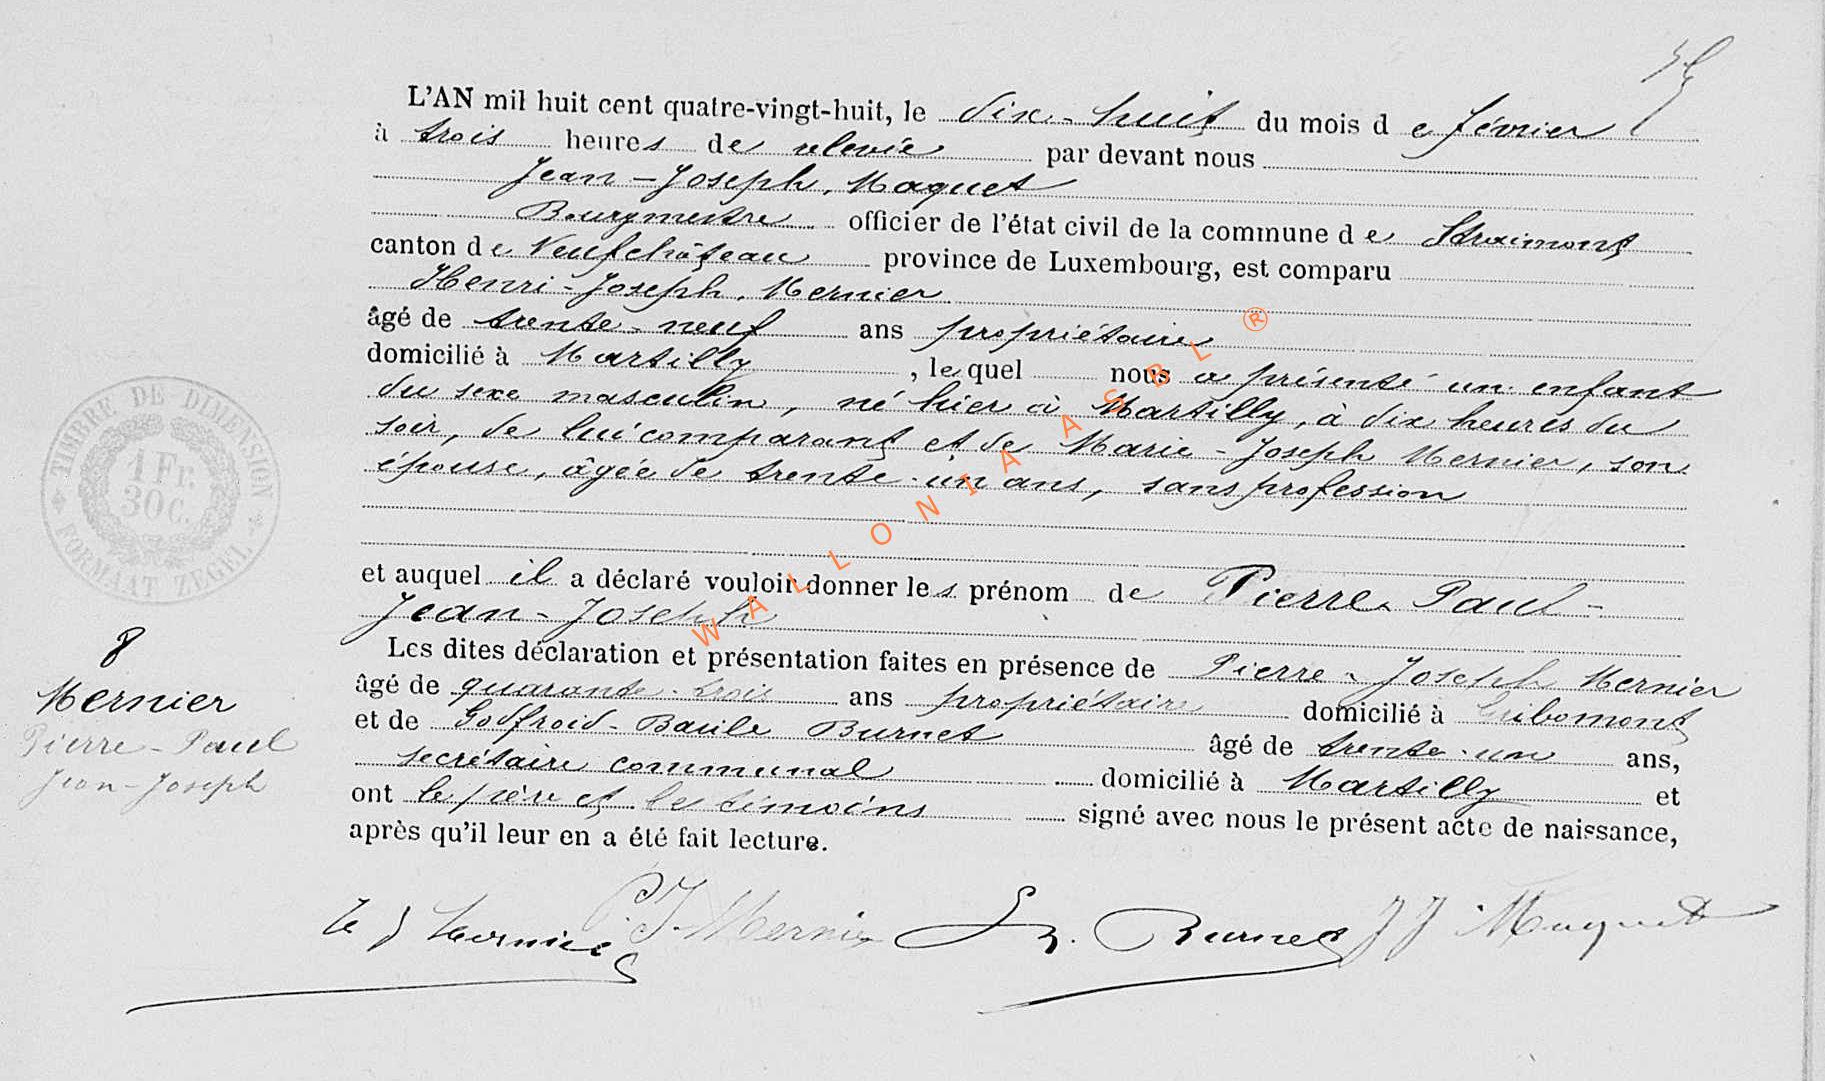 L'AN mil huit cent quatre-vingt-huit, le dix-huit du mois de février
à trois heures de relevée par devant nous
Jean-Joseph Maquet
Bourgmestre officier de l'état civil de la commune de Straimont
canton de Neufchâteau province de Luxembourg, est comparu
Henri-Joseph Mernier
âgé de trente-neuf ans propriétaire
domicilié à Martilly, lequel nous a présenté un enfant
du sexe masculin, né hier à Martilly, à dix heures du
soir, de lui comparant et de Marie-Joseph Mernier, son
épouse, âgée de trente-un ans, sans profession
et auquel il a déclaré vouloir donner les prénom de Pierre-Paul-
Jean-Joseph
Les dites déclaration et présentation faites en présence de Pierre-Joseph Mernier
âgé de quarante-trois ans propriétaire domicilié à Gribomont
et de Godfroid-Basile Burnet âgé de trente-un ans,
secrétaire communal domicilié à Martilly et
ont le père et les témoins signé avec nous le présent acte de naissance,
après qu'il leur en a été fait lecture.
8
Mernier
Pierre-Paul
Jean-Joseph
TIMBRE DE DIMENSION
1 Fr.
30 C.
FORMAAT ZEGEL
H J Mernier P.J. Mernier Burnet J J Maquet
WALLONIA ASBL ®